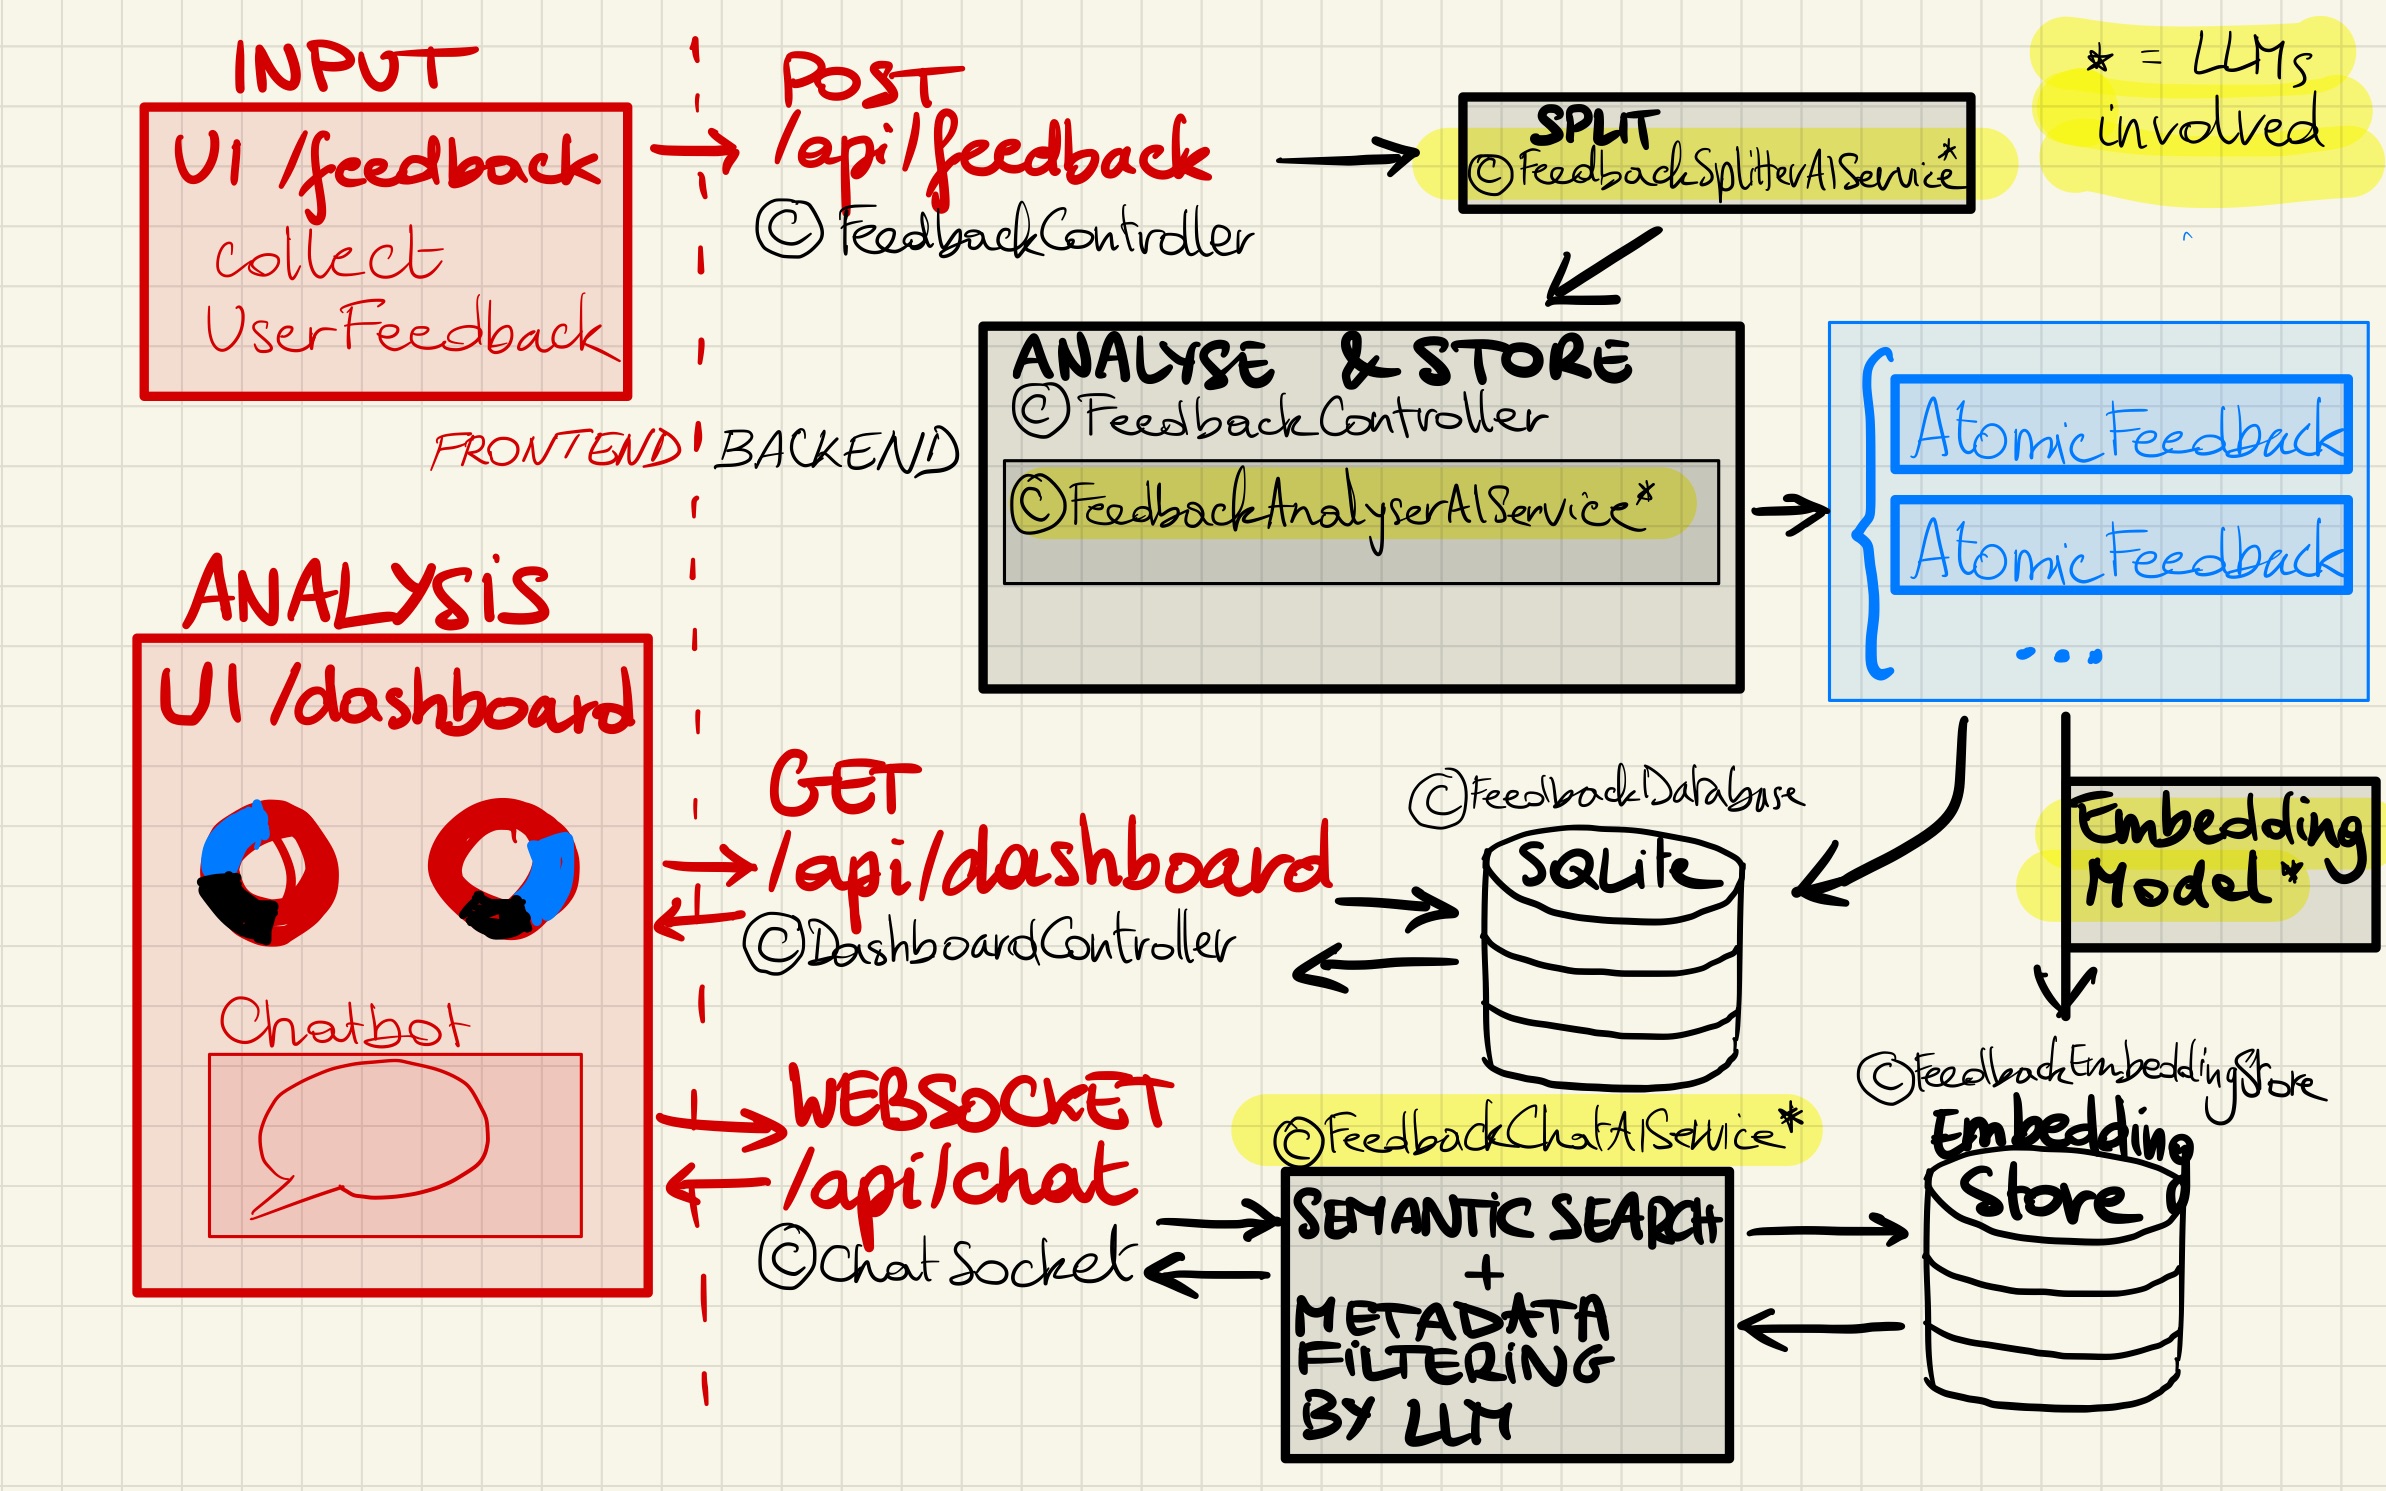 INPUT
UI /feedback
collect
UserFeedback
POST
/api/feedback
© FeedbackController
SPLIT
© FeedbackSplitterAIService*
* = LLMs
involved
FRONTEND
BACKEND
ANALYSE & STORE
© FeedbackController
© FeedbackAnalyserAIService*
AtomicFeedback
AtomicFeedback
...
ANALYSIS
UI /dashboard
Chatbot
GET
/api/dashboard
© DashboardController
© FeedbackDatabase
SQLite
Embedding
Model*
WEBSOCKET
/api/chat
© ChatSocket
© FeedbackChatAIService*
SEMANTIC SEARCH
+
METADATA
FILTERING
BY LLM
© FeedbackEmbeddingStore
Embedding
Store